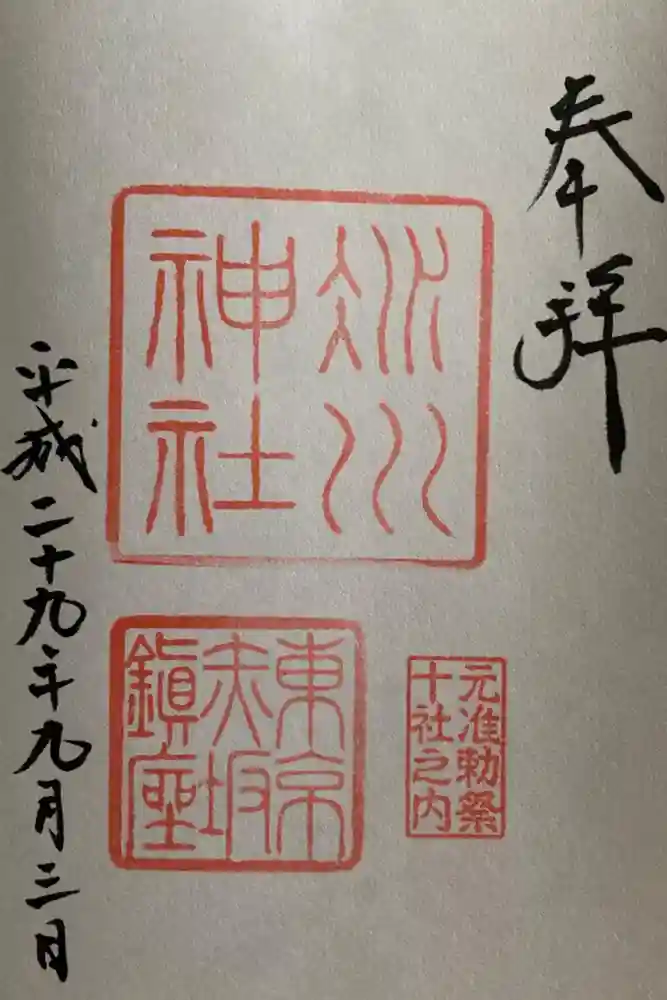 奉拝
氷川
神社
元准勅祭
十社之内
東京
赤坂
鎮座
平成二十九年九月三日